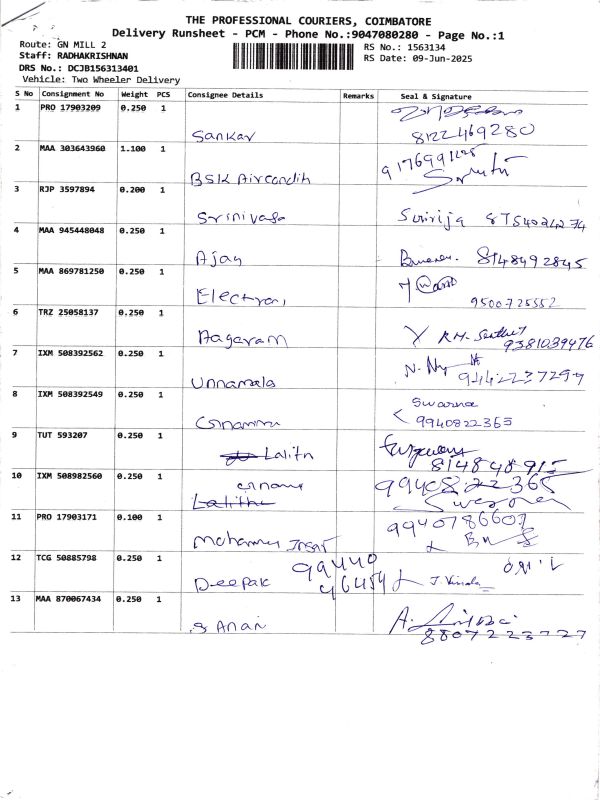 THE PROFESSIONAL COURIERS, COIMBATORE
Delivery Runsheet - PCM - Phone No.:9047080280 - Page No.:1
Route: GN MILL 2
Staff: RADHAKRISHNAN
DRS No.: DCJB156313401
Vehicle: Two Wheeler Delivery
RS No.: 1563134
RS Date: 09-Jun-2025
S No Consignment No Weight PCS Consignee Details Remarks Seal & Signature
1 PRO 17903209 0.250 1 Sankar 8122469280
2 MAA 303643960 1.100 1 BSK Aircondih
3 RJP 3597894 0.200 1 Srinivasa
4 MAA 945448048 0.250 1 Ajay 8148492845
5 MAA 869781250 0.250 1 9500725552
6 TRZ 25058137 0.250 1 Aagaram 9381039476
7 IXM 508392562 0.250 1 Unnamala 9442237297
8 IXM 508392549 0.250 1 Swarna 9940822365
9 TUT 593207 0.250 1 Lalith
10 IXM 508982560 0.250 1 Lalitha 9940822365
11 PRO 17903171 0.100 1 9940786607
12 TCG 50885798 0.250 1 Deepak 99440 46454
13 MAA 870067434 0.250 1 8807223727